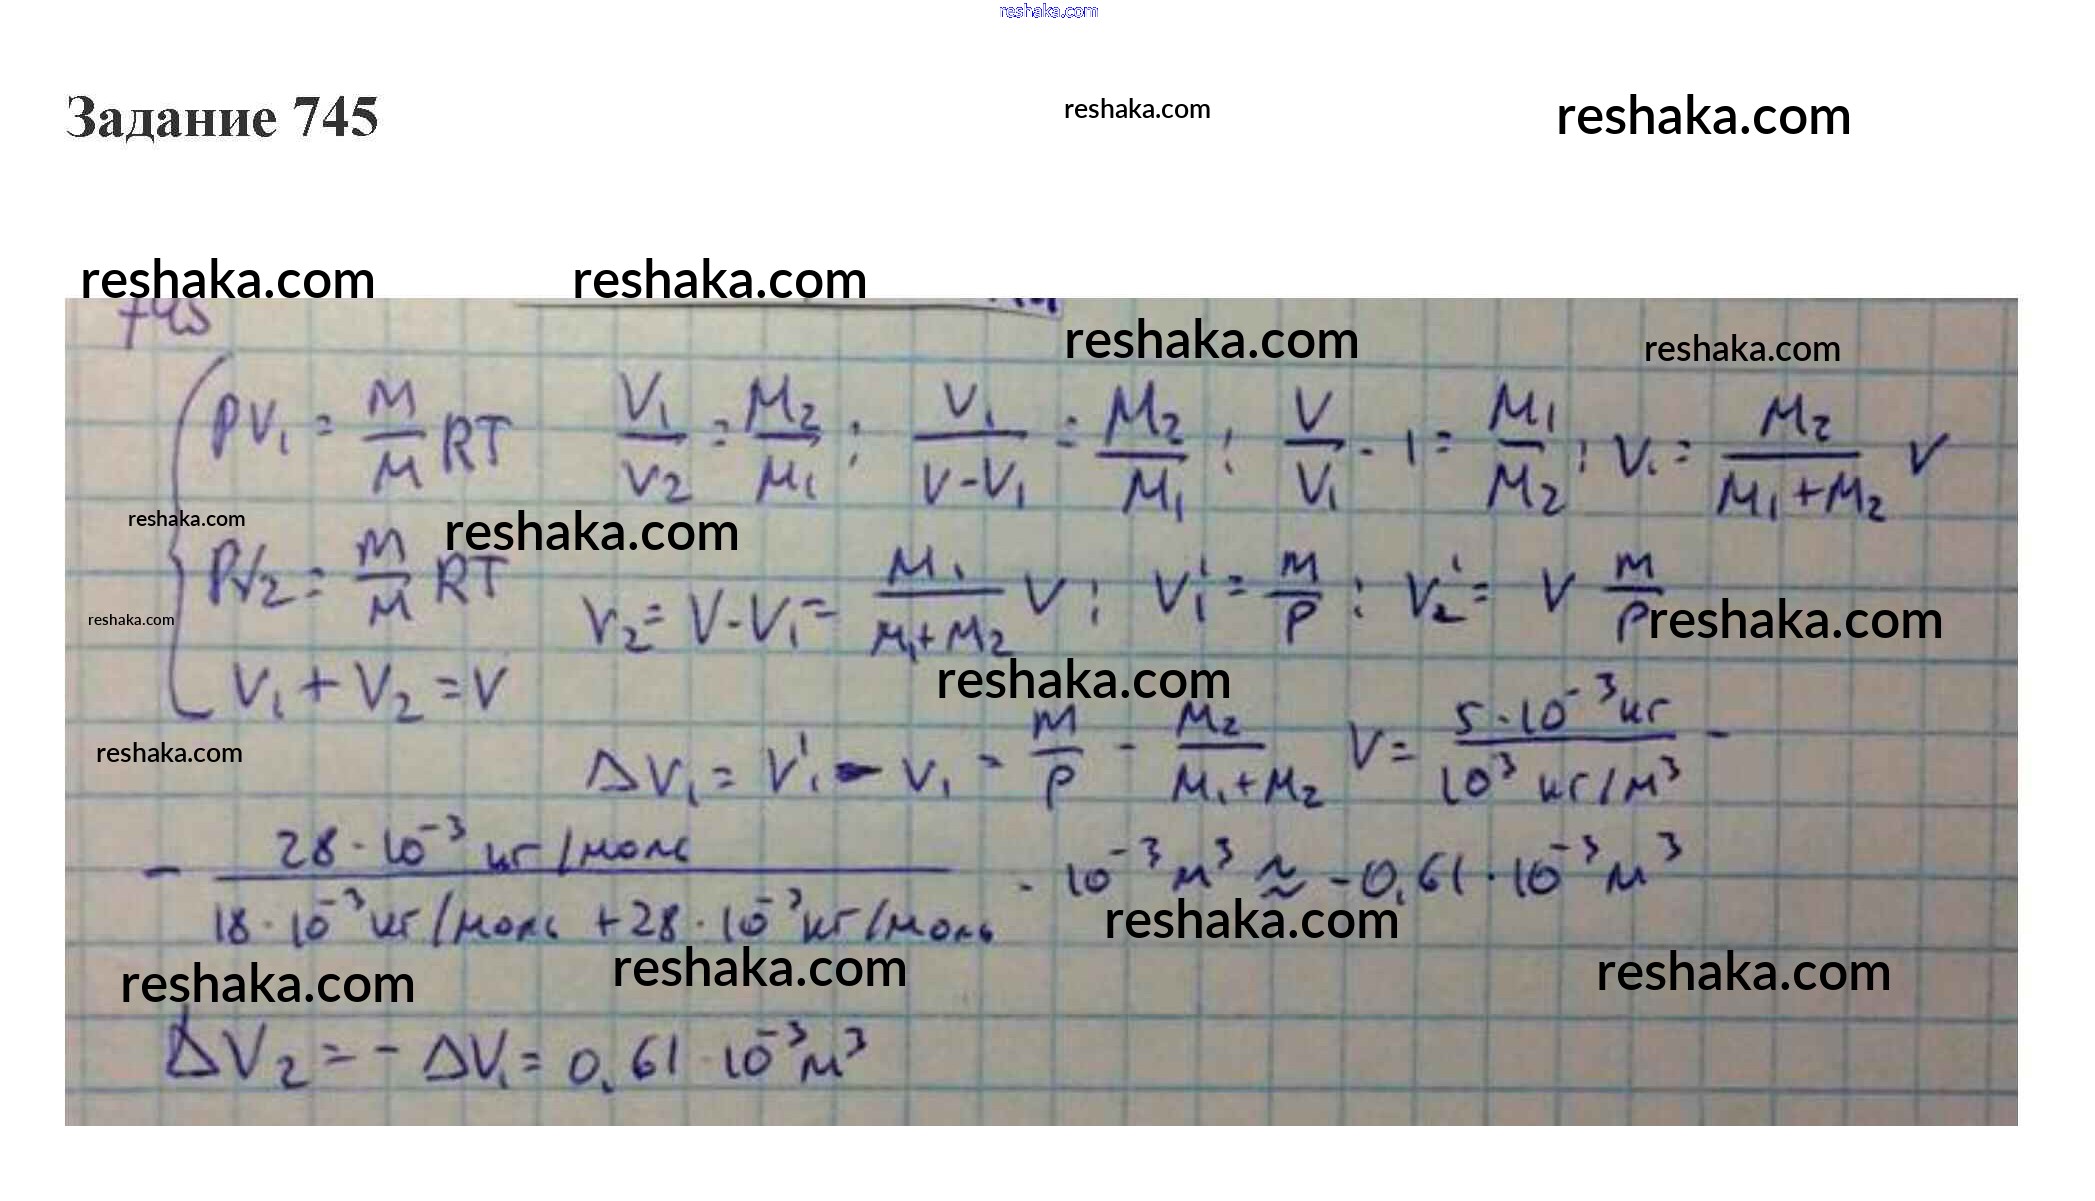 reshaka.com
Задание 745
reshaka.com
reshaka.com
reshaka.com
reshaka.com
745
reshaka.com
reshaka.com
PV₁ = m/M RT   V₁/V₂ = M₂/M₁; V₁/(V-V₁) = M₂/M₁; V/V₁ - 1 = M₁/M₂; V₁ = M₂/(M₁+M₂) V
reshaka.com
reshaka.com
PV₂ = m/M RT   V₂ = V-V₁ = M₁/(M₁+M₂) V; V₁' = m/ρ; V₂' = V m/ρ
reshaka.com
reshaka.com
V₁ + V₂ = V
reshaka.com
reshaka.com
ΔV₁ = V₁' - V₁ = m/ρ - M₂/(M₁+M₂) V = 5·10⁻³кг/10³ кг/м³ -
- 28·10⁻³ кг/моль/(18·10⁻³кг/моль + 28·10⁻³кг/моль) · 10⁻³м³ ≈ -0,61·10⁻³м³
reshaka.com
reshaka.com
reshaka.com
reshaka.com
ΔV₂ = - ΔV₁ = 0,61·10⁻³м³